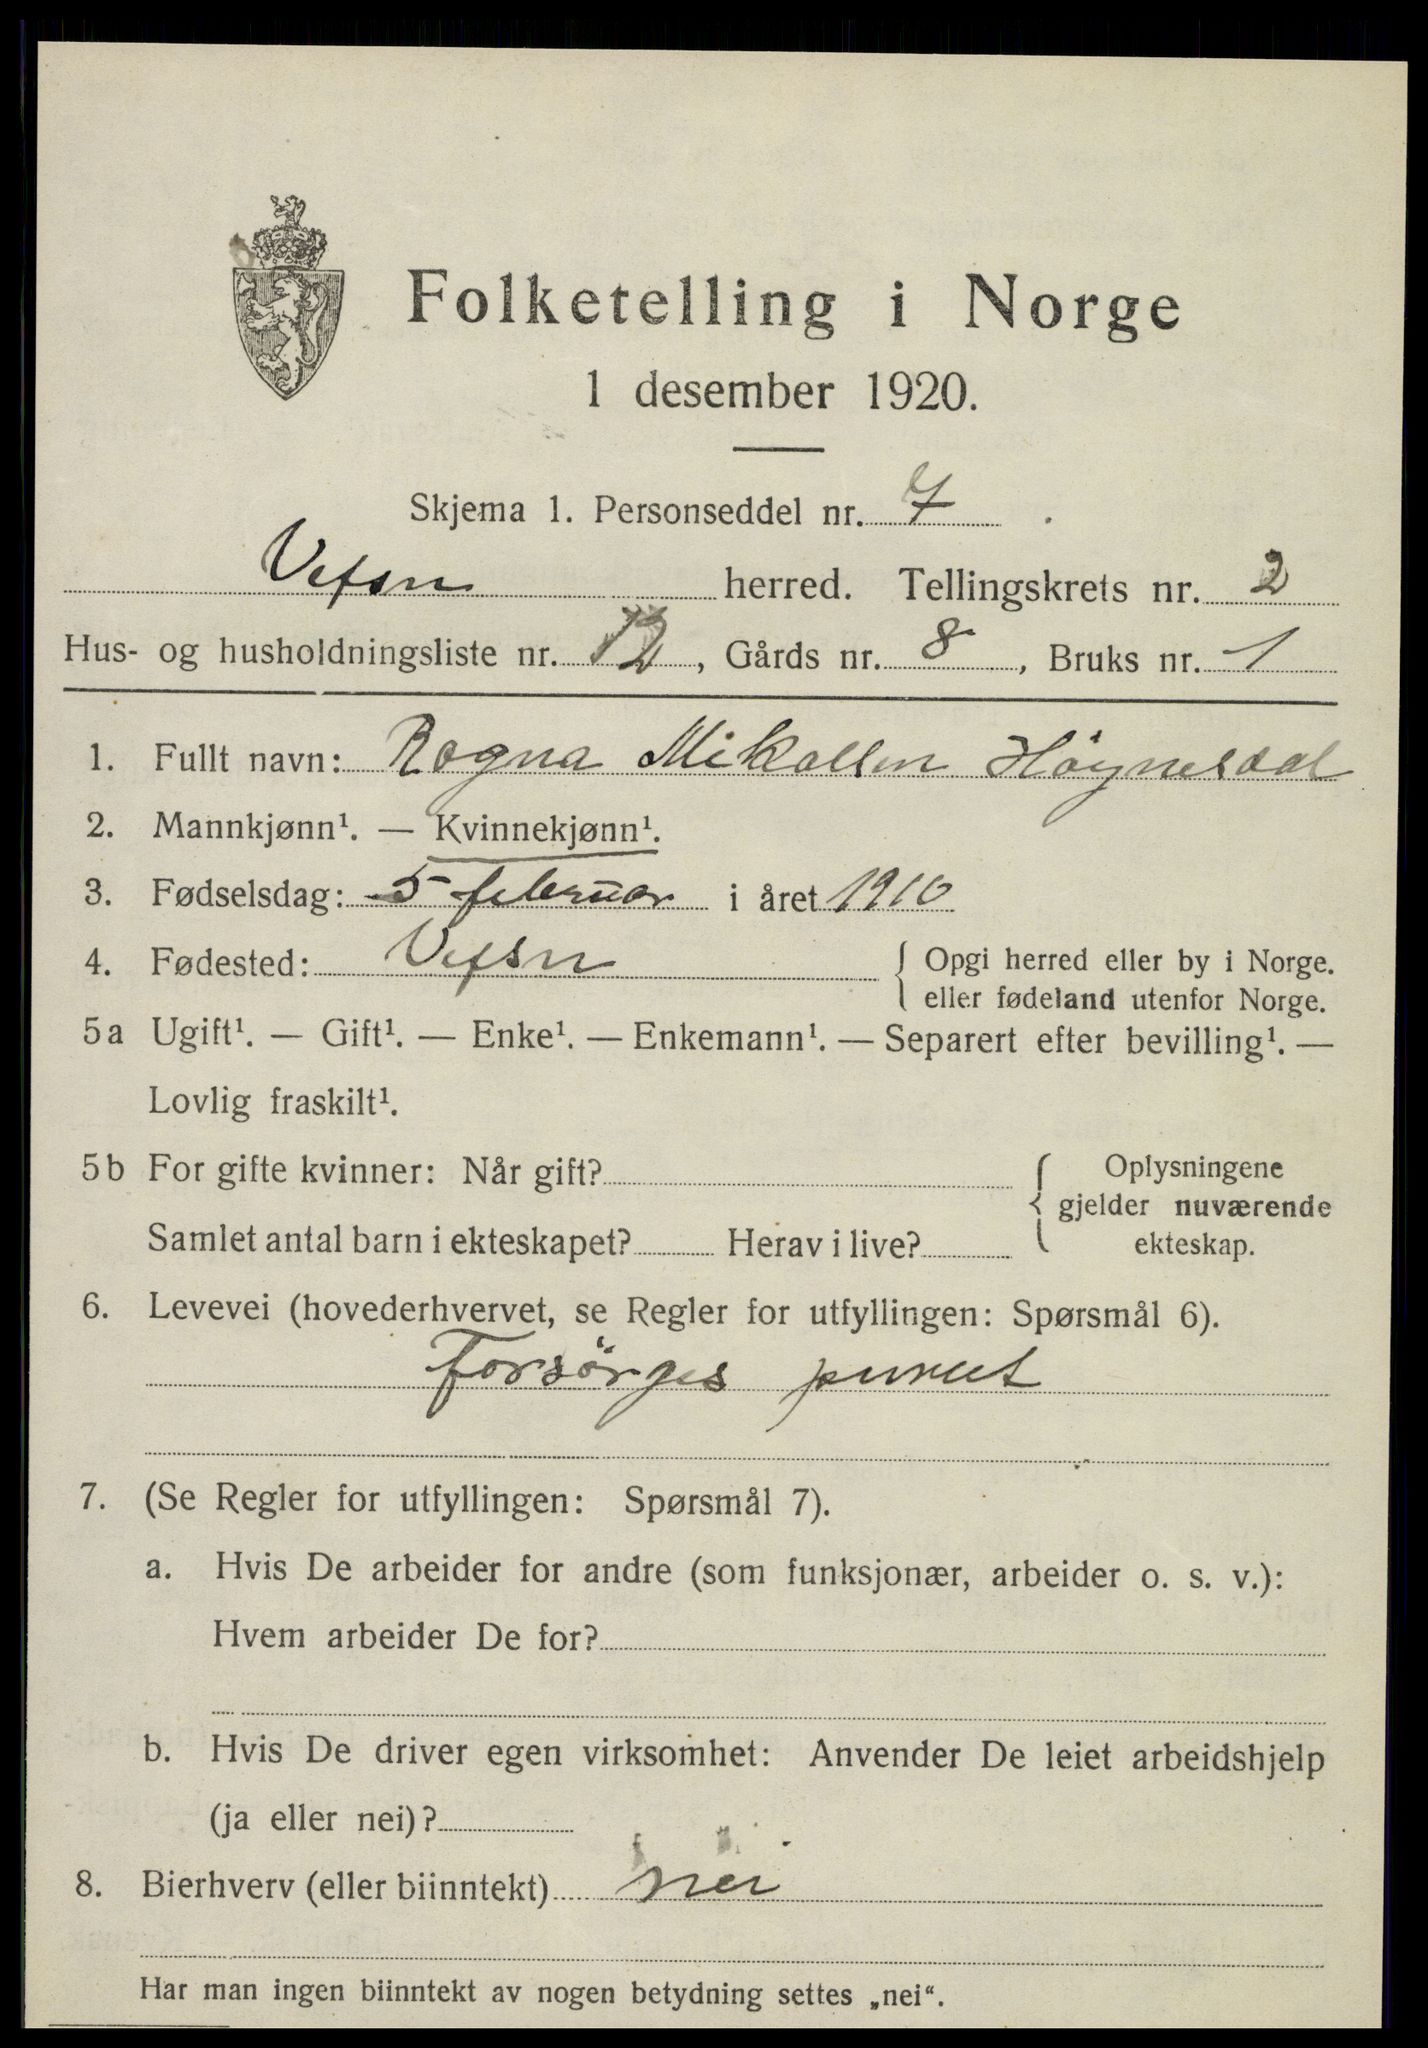 Folketelling i Norge
1 desember 1920.
Skjema 1. Personseddel nr. 7
Vefsn herred. Tellingskrets nr. 2
Hus- og husholdningsliste nr. 12, Gårds nr. 8, Bruks nr. 1
1. Fullt navn: Ragna Mikalsen Höynesdal
2. Mannkjønn¹. — Kvinnekjønn¹.
3. Fødselsdag: 5 februar i året 1910
4. Fødested: Vefsn { Opgi herred eller by i Norge.
eller fødeland utenfor Norge.
5a Ugift¹. — Gift¹. — Enke¹. — Enkemann¹. — Separert efter bevilling¹. —
Lovlig fraskilt¹.
5b For gifte kvinner: Når gift? { Oplysningene
gjelder nuværende
Samlet antal barn i ekteskapet? Herav i live? ekteskap.
6. Levevei (hovederhvervet, se Regler for utfyllingen: Spørsmål 6).
Forsörges
7. (Se Regler for utfyllingen: Spørsmål 7).
a. Hvis De arbeider for andre (som funksjonær, arbeider o. s. v.):
Hvem arbeider De for?
b. Hvis De driver egen virksomhet: Anvender De leiet arbeidshjelp
(ja eller nei)?
8. Bierhverv (eller biinntekt) nei
Har man ingen biinntekt av nogen betydning settes „nei“.